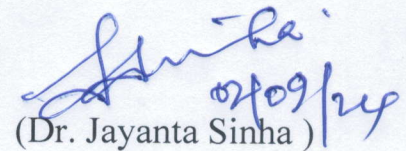 Sinha
02/09/24
(Dr. Jayanta Sinha )